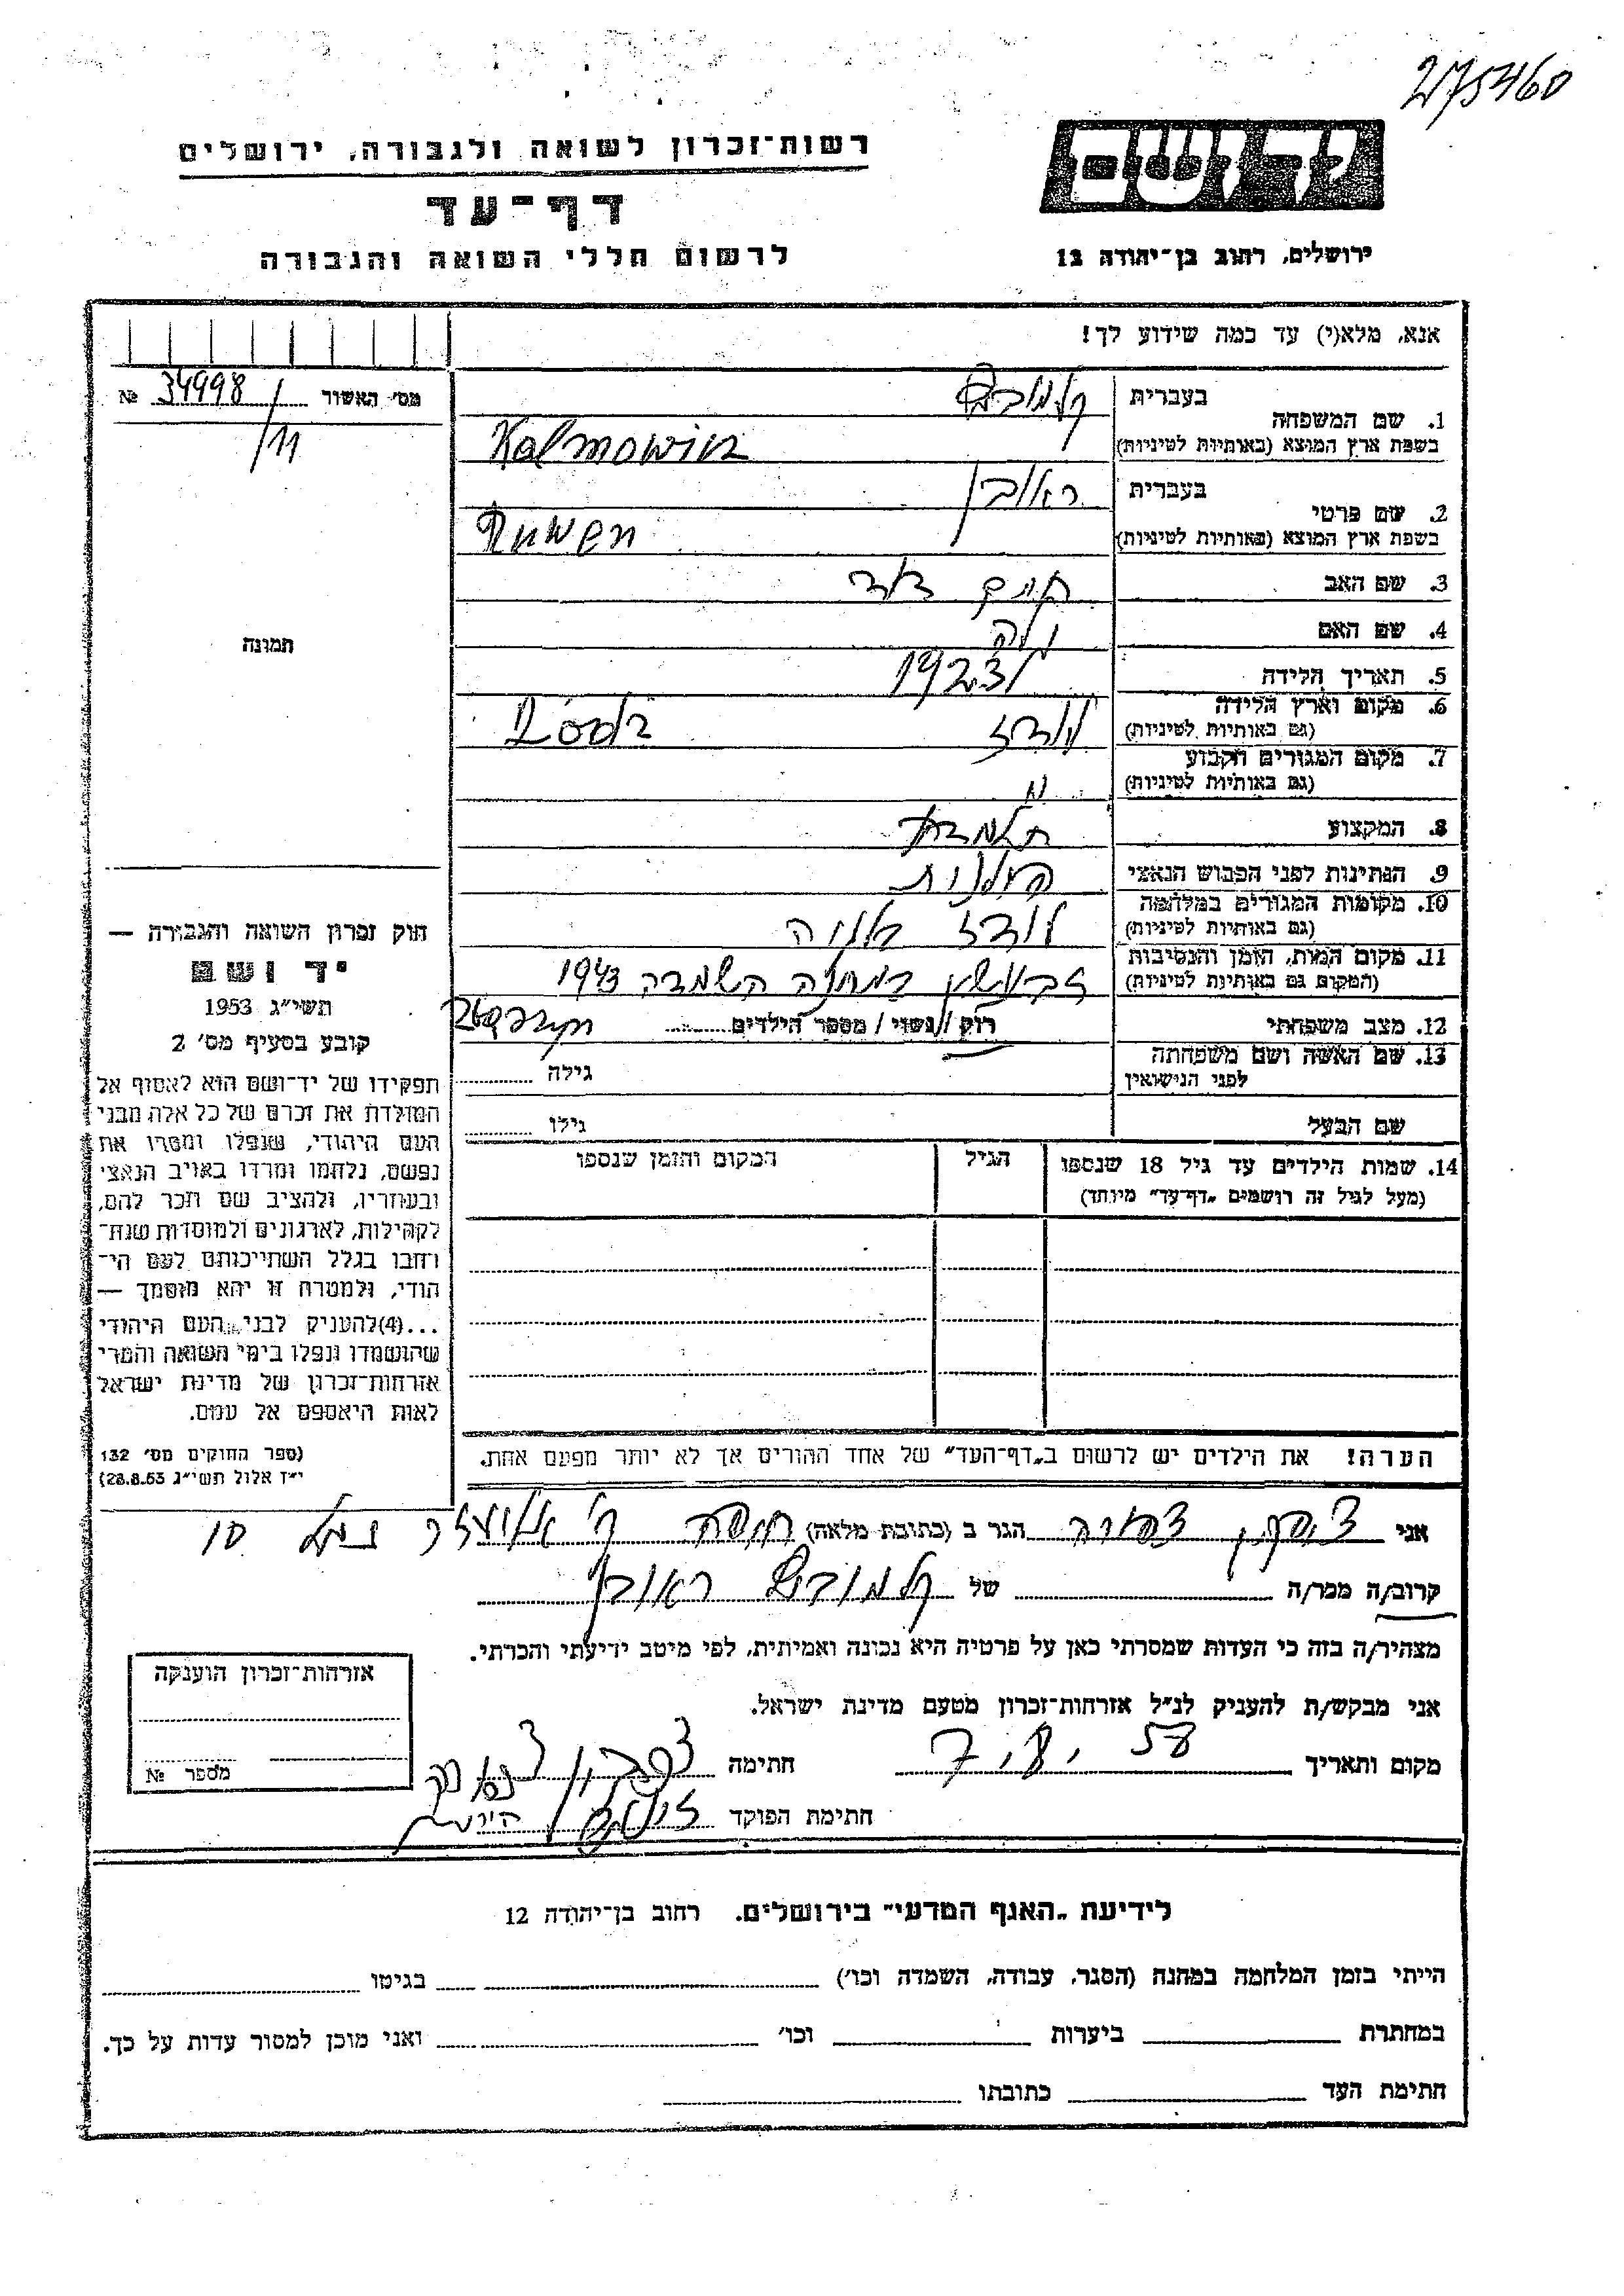 275460
רשות־זכרון לשואה ולגבורה, ירושלים
יד ושם
דף־עד
לרשום חללי השואה והגבורה
ירושלים, רחוב בן־יהודה 12
אנא, מלא(י) עד כמה שידוע לך!
מס' האשור 34998 №
/11
1. שם המשפחה
בעברית
בשפת ארץ המוצא (באותיות לטיניות) Kalmowicz
2. שם פרטי
בעברית ראובן
בשפת ארץ המוצא (באותיות לטיניות) Ruwen
3. שם האב חיים דוד
4. שם האם
5. תאריך הלידה 1923
6. מקום וארץ הלידה
(גם באותיות לטיניות) לודז
7. מקום המגורים הקבוע
(גם באותיות לטיניות) "
8. המקצוע
9. הנתינות לפני הכבוש הנאצי
10. מקומות המגורים במלחמה
(גם באותיות לטיניות) לודז
11. מקום המות, הזמן והנסיבות
(המקום גם באותיות לטיניות) במחנה השמדה 1943
12. מצב משפחתי רוק / נשוי / מספר הילדים
13. שם האשה ושם משפחתה
לפני הנישואין
גילה
שם הבעל גילו
14. שמות הילדים עד גיל 18 שנספו
(מעל לגיל זה רושמים „דף־עד" מיוחד)
הגיל
המקום והזמן שנספו
הערה! את הילדים יש לרשום ב„דף־העד" של אחד ההורים אך לא יותר מפעם אחת.
תמונה
חוק זכרון השואה והגבורה —
יד ושם
תשי"ג 1953
קובע בסעיף מס' 2
תפקידו של יד־ושם הוא לאסוף אל
המולדת את זכרם של כל אלה מבני
העם היהודי, שנפלו ומסרו את
נפשם, נלחמו ומרדו באויב הנאצי
ובעוזריו, ולהציב שם וזכר להם,
לקהילות, לארגונים ולמוסדות שנח־
רחבו בגלל השתייכותם לעם הי־
הודי, ולמטרה זו יהא מוסמך —
...(4) להעניק לבני העם היהודי
שהושמדו ונפלו בימי השואה והמרי
אזרחות־זכרון של מדינת ישראל
לאות היאספם אל עמם.
(ספר החוקים מס' 132
י"ז אלול תשי"ג 28.8.53)
אני הגר ב (כתובת מלאה) 10
קרוב/ה מכר/ה של ראובן
מצהיר/ה בזה כי העדות שמסרתי כאן על פרטיה היא נכונה ואמיתית, לפי מיטב ידיעתי והכרתי.
אני מבקש/ת להעניק לנ"ל אזרחות־זכרון מטעם מדינת ישראל.
מקום ותאריך 7.8.58 חתימה
חתימת הפוקד
אזרחות־זכרון הוענקה
מספר №
לידיעת „האגף המדעי" בירושלים. רחוב בן־יהודה 12
הייתי בזמן המלחמה במחנה (הסגר, עבודה, השמדה וכו') בגיטו
במחתרת ביערות וכו' ואני מוכן למסור עדות על כך.
חתימת העד כתובתו